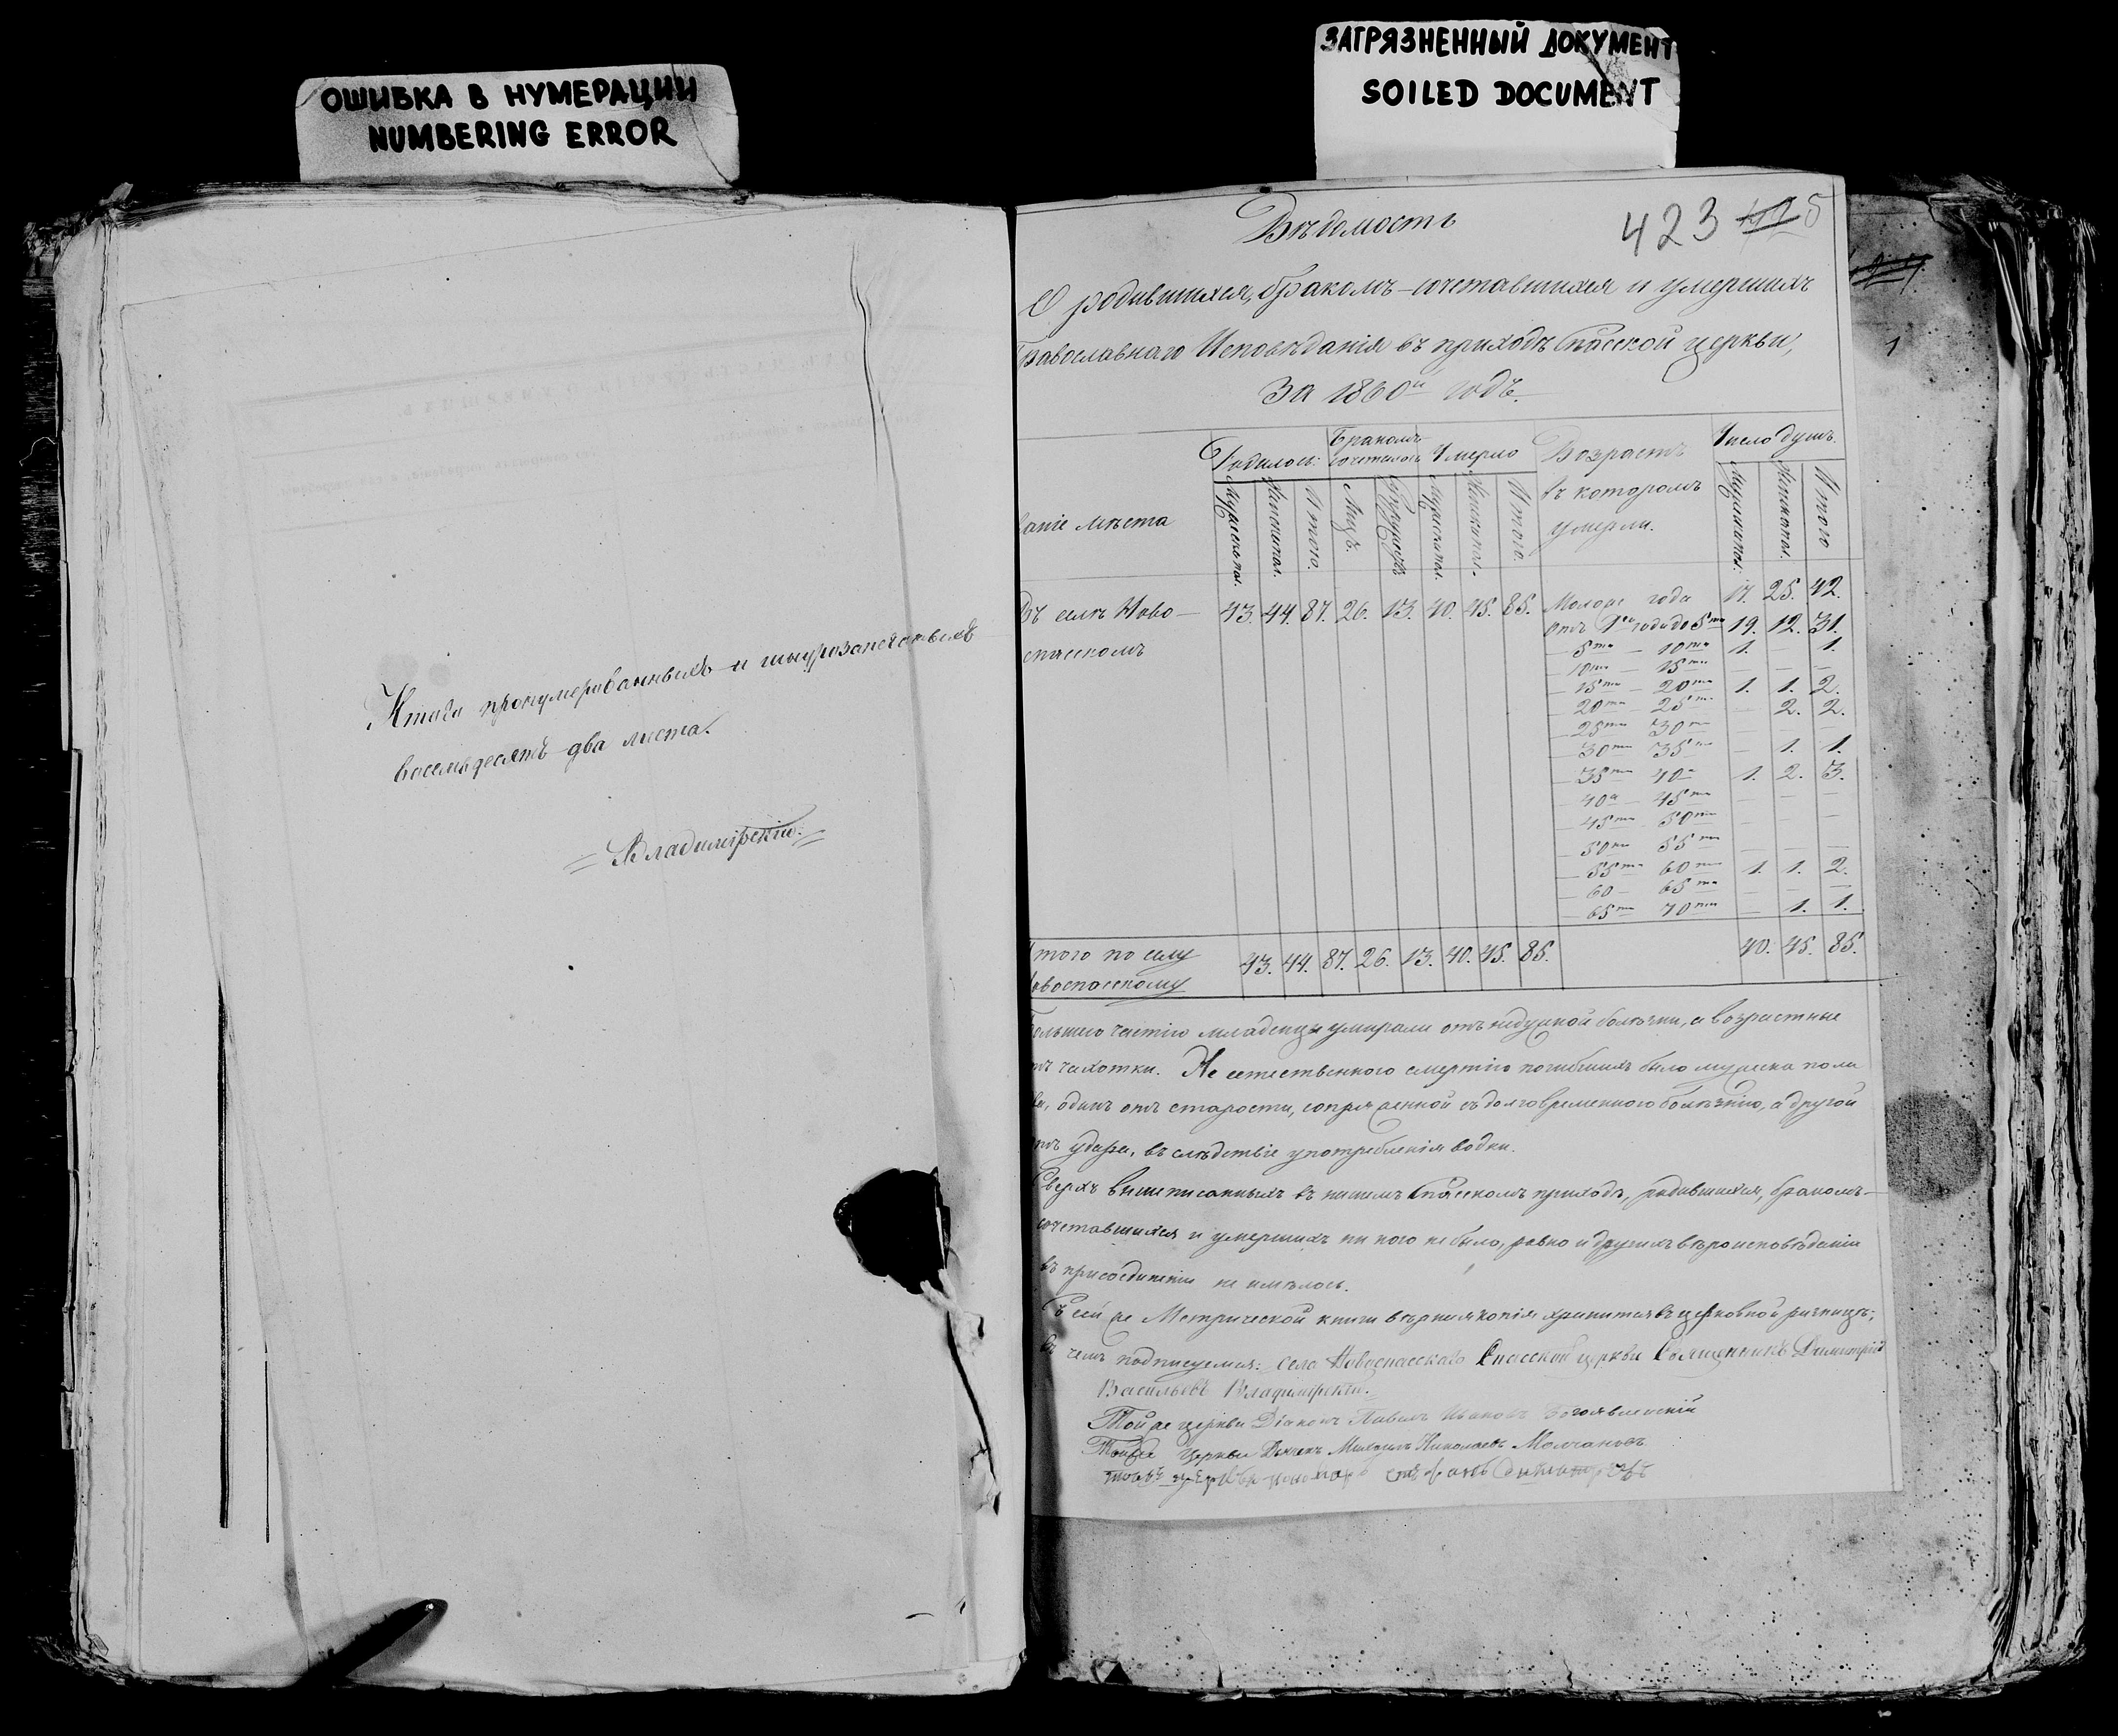 ОШИБКА В НУМЕРАЦИИ
NUMBERING ERROR
ЗАГРЯЗНЕННЫЙ ДОКУМЕНТ
SOILED DOCUMENT
пронумерованныхъ и шнурозапечатанныхъ
восемьдесятъ два листа.
Владимірскій.
Вѣдомость
423
О родившихся, бракомъ-сочетавшихся и умершихъ
Православнаго Исповѣданія въ приходѣ Спасской церкви,
За 1860й годъ.
1
Родилось: Бракомъ сочеталось Умерло Возрастъ въ которомъ умерли. Число душъ.
ваніе мѣста Мужеска пол. Женска пол. Итого. Лицъ. Супружествъ Мужеска пол. Женска пол. Итого. Мужеска пол. Женска пол. Итого
Въ селѣ Ново- 43. 44. 87. 26. 13. 40. 45. 85. Моложе года 17. 25. 42.
спасскомъ
отъ 1го года до 5ти 19. 12. 31.
— 5ти — 10ти 1. — 1.
— 10ти — 15ти — — —
— 15ти — 20ти 1. 1. 2.
— 20ти 25ти — 2. 2.
— 25ти 30ти — — —
— 30ти 35ти — 1. 1.
— 35ти 40а 1. 2. 3.
— 40а — 45ти — — —
— 45ти 50ти — — —
— 50ти 55ти — — —
— 55ти 60ти 1. 1. 2.
— 60 — 65ти — — —
— 65ти 70ти — 1. 1.
Итого по селу 43. 44. 87. 26. 13. 40. 45. 85. 40. 45. 85.
Новоспасскому
большею частію младенцы умирали отъ недужной болѣзни, а возрастные
отъ чахотки. Не естественною смертію погибшихъ было мужеска пола
два, одинъ отъ старости, сопряженной съ долговременною болѣзнію, а другой
отъ удара, въ слѣдствіе употребленія водки.
Сверхъ вышеписанныхъ въ нашемъ Спасскомъ приходѣ, родившихся, бракомъ-
сочетавшихся и умершихъ ни кого не было, равно и другихъ вѣроисповѣданій
въ присоединеніи не имѣлось.
Съ сей же Метрической книги вѣрная копія хранится въ церковной ризницѣ;
въ чемъ подписуемся: села Новоспасскаго Спасской церкви Священникъ Димитрій
Васильевъ Владимірскій.
Той же церкви Діаконъ Павелъ Ивановъ Богоявленскій
Той же Церкви Дьячекъ Михаилъ Николаевъ Молчановъ
тоже церкви пономарь